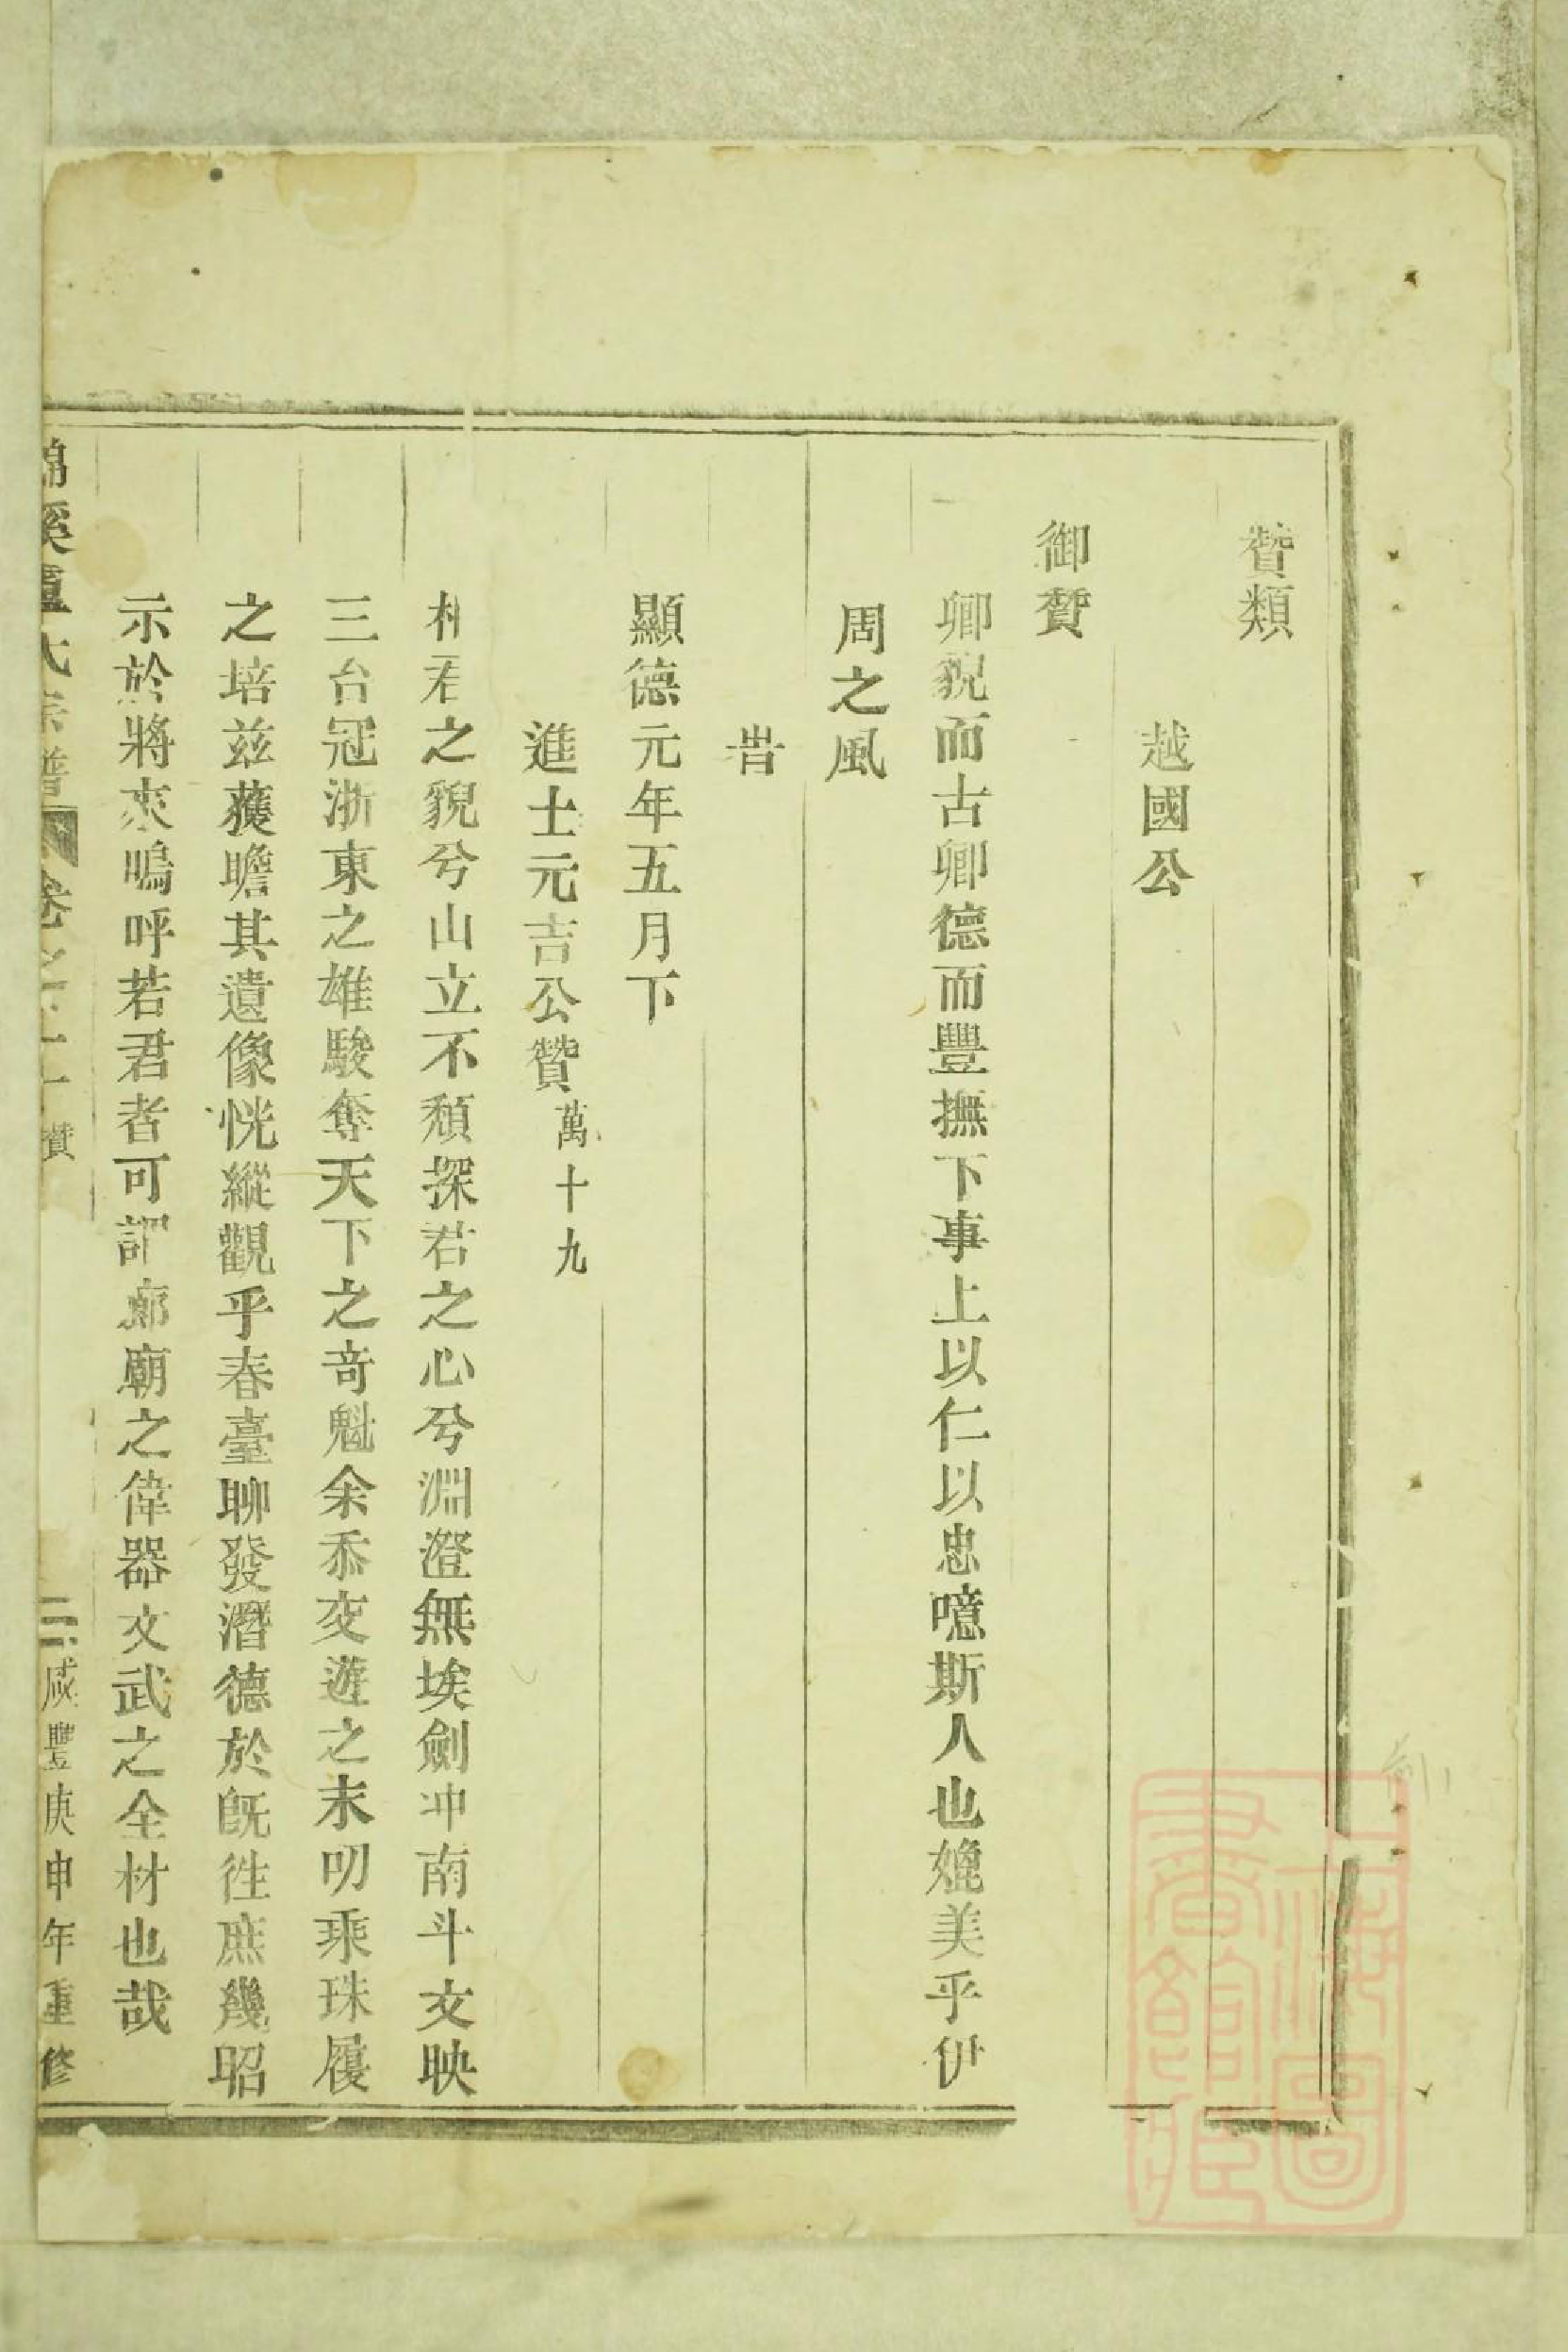 贊類
越國公
御贊
卿貌而古卿德而豐撫下事上以仁以忠噫斯人也媲美乎伊
周之風
旹
顯德元年五月下
進士元吉公贊萬十九
相君之貌兮山立不頹探君之心兮淵澄無埃劍冲南斗文映
三台冠浙東之雄駿奪天下之竒魁余忝交遊之末叨乘珠履
之培兹獲瞻其遺像恍縱觀乎春臺聊發潛德於旣徃庶幾昭
示於將來嗚呼若君者可謂廊廟之偉器文武之全材也哉
溪 大宗譜 卷之 贊 二 咸豐庚申年重修
上海圖書館藏